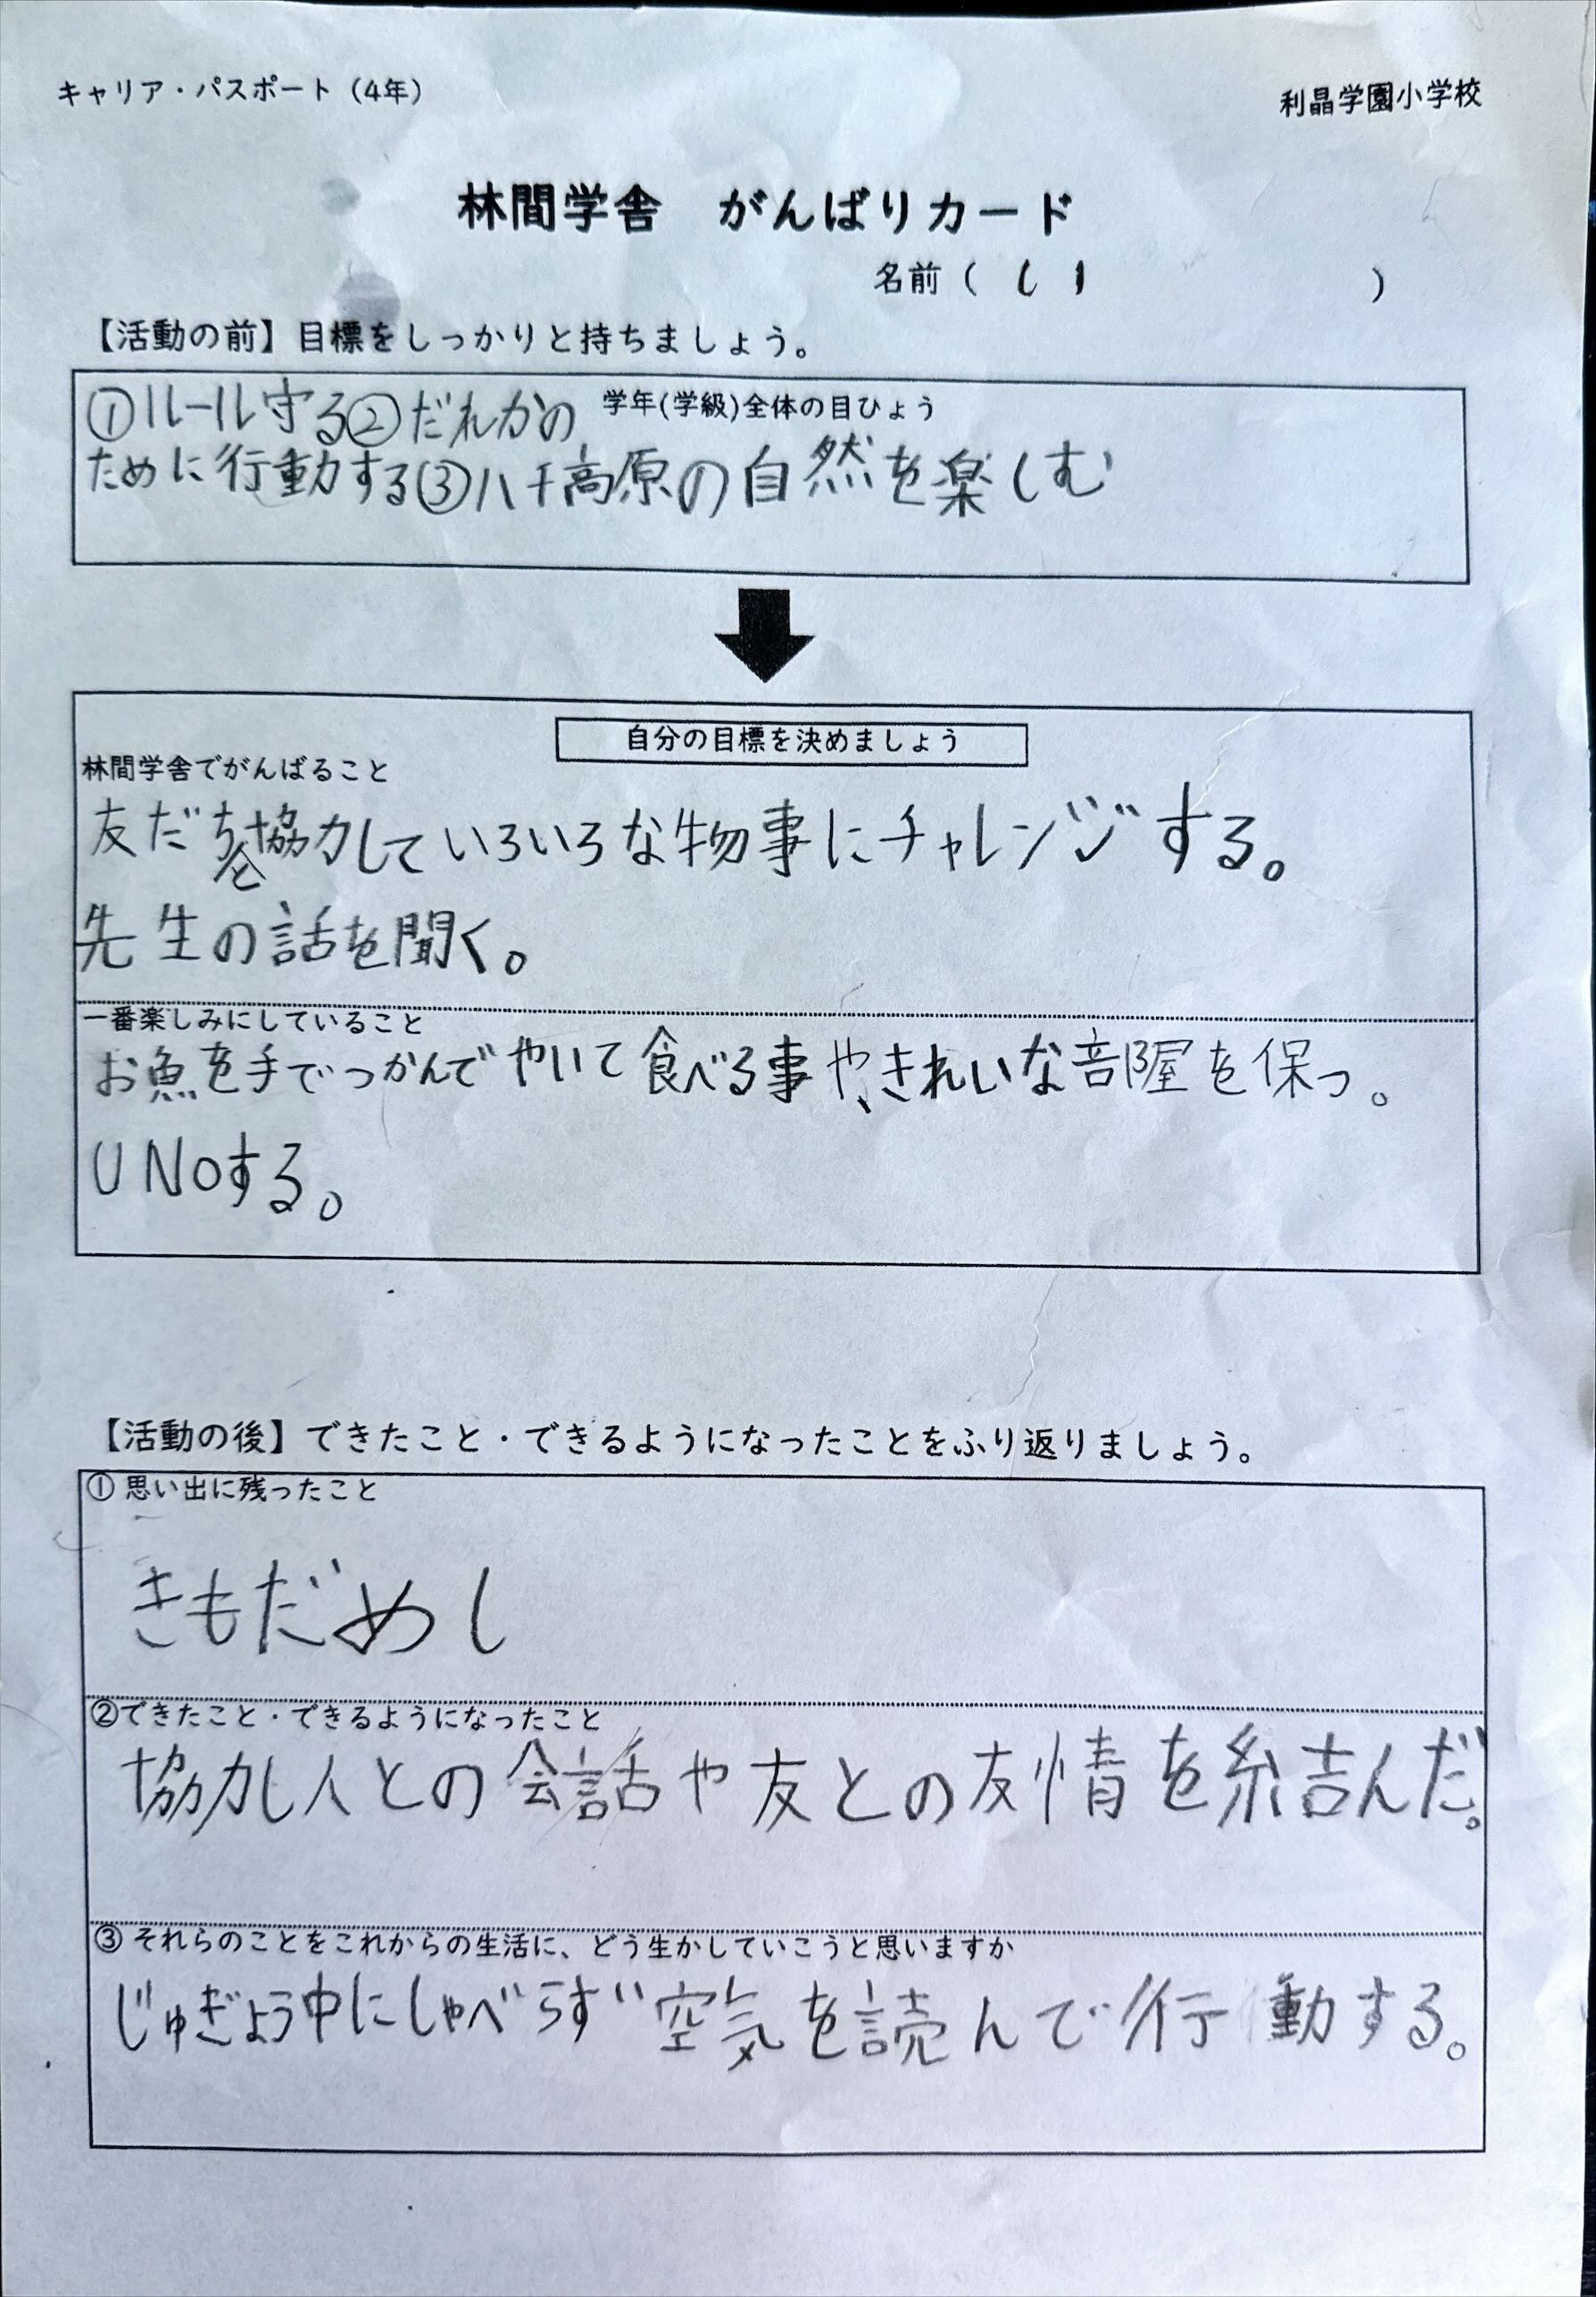 キャリア・パスポート（4年）
利晶学園小学校
林間学舎　がんばりカード
名前（　　　）
【活動の前】目標をしっかりと持ちましょう。
学年(学級)全体の目ひょう
①ルール守る②だれかの
ために行動する③ハチ高原の自然を楽しむ
自分の目標を決めましょう
林間学舎でがんばること
友だちと協力していろいろな物事にチャレンジする。
先生の話を聞く。
一番楽しみにしていること
お魚を手でつかんでやいて食べる事や、きれいな部屋を保つ。
UNOする。
【活動の後】できたこと・できるようになったことをふり返りましょう。
① 思い出に残ったこと
きもだめし
②できたこと・できるようになったこと
協力し人との会話や友との友情を結んだ。
③ それらのことをこれからの生活に、どう生かしていこうと思いますか
じゅぎょう中にしゃべらず空気を読んで行動する。